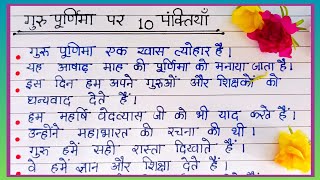 गुरु पूर्णिमा पर 10 पंक्तियाँ
गुरु पूर्णिमा एक खास त्योहार है।
यह आषाढ़ माह की पूर्णिमा को मनाया जाता है।
इस दिन हम अपने गुरुओं और शिक्षकों को
धन्यवाद देते हैं।
हम महर्षि वेदव्यास जी को भी याद करते हैं।
उन्होंने महाभारत की रचना की थी।
गुरु हमें सही रास्ता दिखाते हैं।
वे हमें ज्ञान और शिक्षा देते हैं।